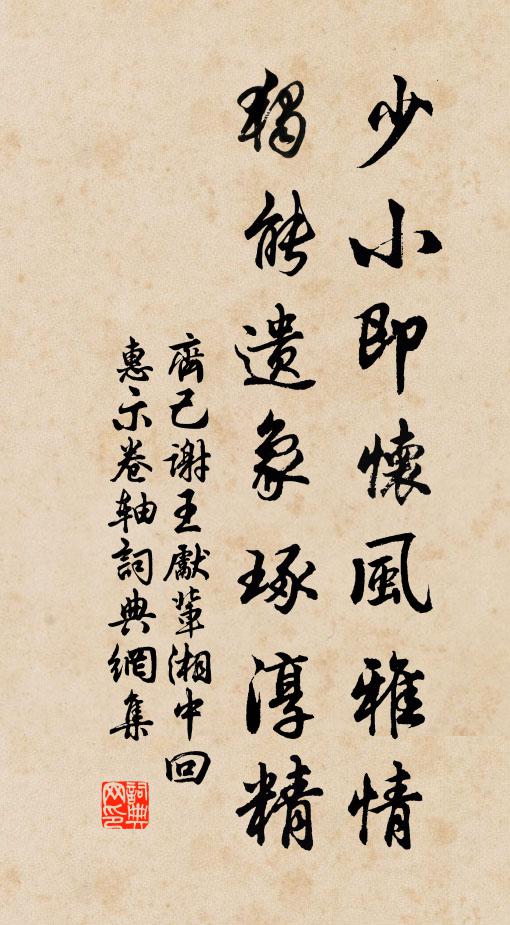 少小即懷風雅情
獨能遺象琢淳精
齊己謝王獻輩湘中回
惠示卷軸詞典網集
詞典網印